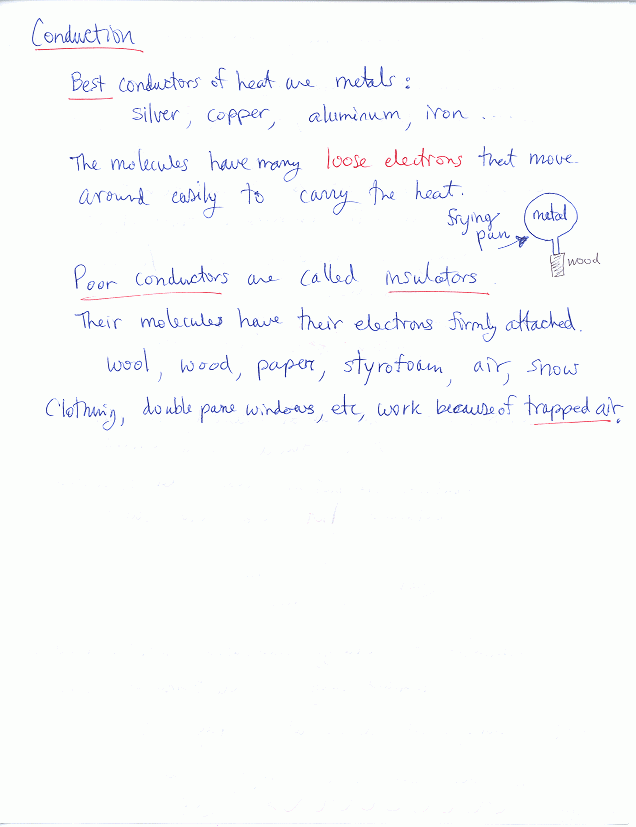 Conduction
Best conductors of heat are metals:
silver, copper, aluminum, iron ....
The molecules have many loose electrons that move
around easily to carry the heat.
frying
pan
metal
wood
Poor conductors are called insulators.
Their molecules have their electrons firmly attached.
wool, wood, paper, styrofoam, air, snow
Clothing, double pane windows, etc, work because of trapped air.